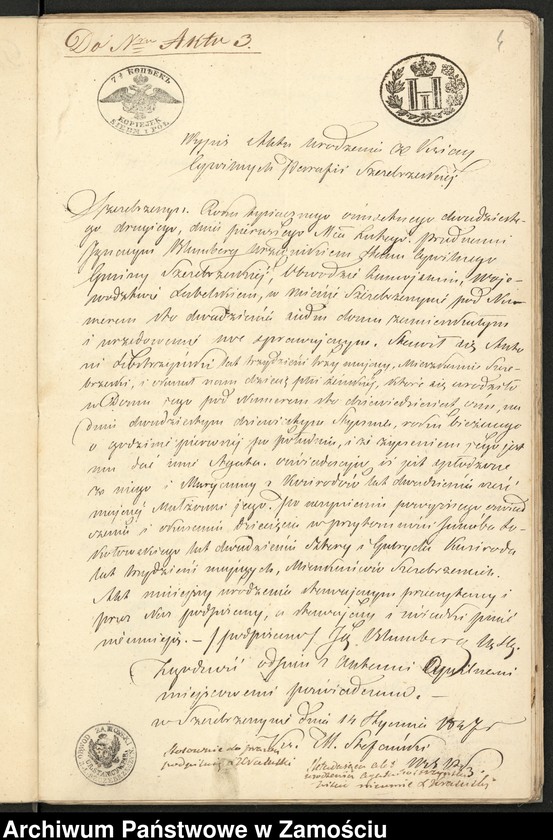 Do Nru Aktu 3.
4
7½ КОПѢЕКЪ
KOPIEJEK
SIEDM I PÓŁ
Wypis Aktu Urodzenia z Xsiąg
Cywilnych Parafii Szczebrzeskiéj.
Szczebrzeszyn. Roku tysiącznego ośmsetnego dwudzieste-
go drugiego, dnia pierwszego Mca Lutego. Przed nami
Ignacym Blumberg Urzędnikiem Stanu Cywilnego
Gminy Szczebrzeskiéj, Obwodzie Zamoyskim, Woje-
wodztwie Lubelskiem, w mieście Szczebrzeszynie pod Nu-
merem sto dwadzieścia siedm domu zamieszkałym
i urzędowanie swe sprawującym. Stawił się Anto-
ni lat trzydzieści trzy mający, Mieszkaniec Szcze-
brzeski, i okazał nam dziecię płci żeńskiéj, które się urodziło
w Domu jego pod Numerem sto dziewiędziesiąt ośm, na
dniu dwudziestym dziewiątym Stycznia, roku bieżącego
o godzinie pierwszéj po południu, i iż życzeniem jego jest
mu dać imie Agata. oświadczając iż jest spłodzone
z niego i Maryanny z Kusirodów lat dwadzieścia sześć
mającéj Małżonki jego. Po uczynieniu powyższego oświad-
czenia i okazaniu Dziecięcia w przytomności Jakoba So-
kołowskiego lat dwadzieścia cztery i Gabryela Kusiroda
lat trzydzieści mających, Mieszkańców Szczebrzeskich.
Akt niniejszy urodzenia stawającym przeczytany i
przez Nas podpisany, a stawający i świadki pisać
nieumieją. — /podpisano/ Ig. Blumberg U.S.C.
Zgodność odpisu z aktami Cywilnemi
miejscowemi poświadczam. —
w Szczebrzeszynie dnia 14 Stycznia 1847 r
X. M. Stefański
Stosownie do prawa
podpisał
Archiwum Państwowe w Zamościu